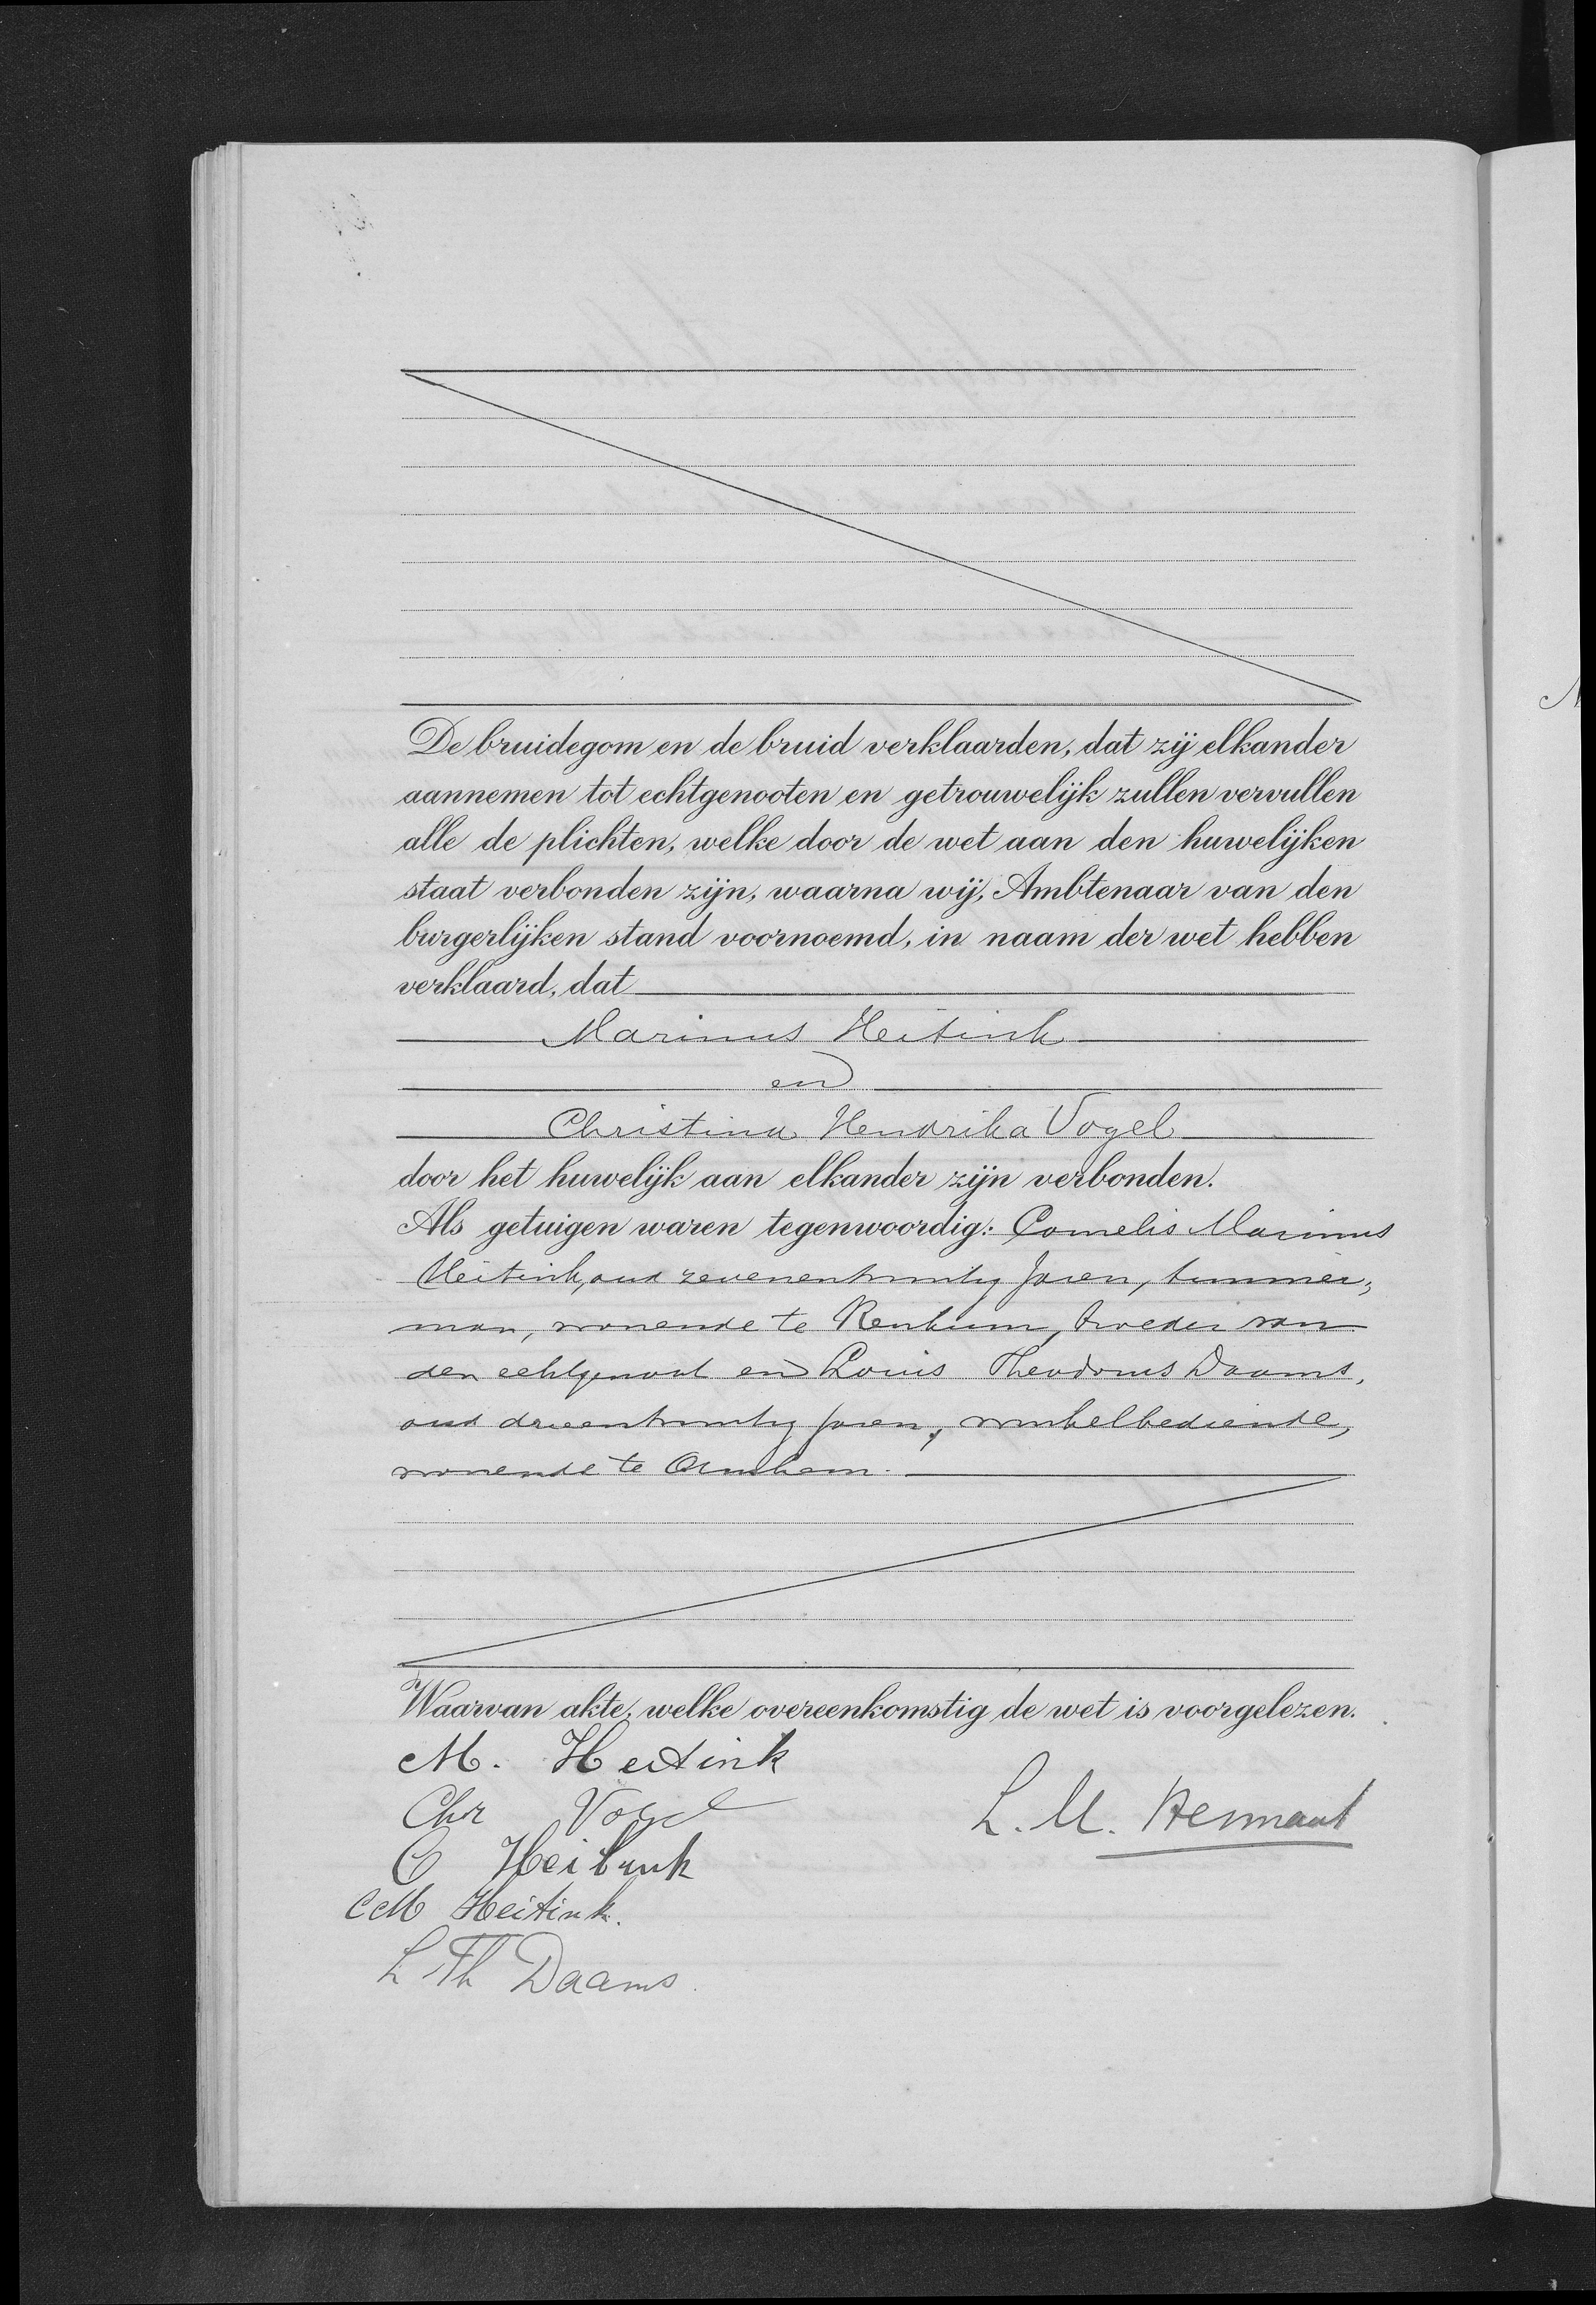 De bruidegom en de bruid verklaarden, dat zij elkander
aannemen tot echtgenooten en getrouwelijk zullen vervullen
alle de plichten, welke door de wet aan den huwelijken
staat verbonden zijn, waarna wij, Ambtenaar van den
burgerlijken stand voornoemd, in naam der wet hebben
verklaard, dat
Marinus Heitink
en
Christina Hendrika Vogel
door het huwelijk aan elkander zijn verbonden.
Als getuigen waren tegenwoordig: Cornelis Marinus
Heitink, oud zevenentwintig jaren, timmer=
man, wonende te Renkum, broeder van
den echtgenoot en Louis Theodorus Daams,
oud drieentwintig jaren, winkelbediende,
wonende te Arnhem.
Waarvan akte, welke overeenkomstig de wet is voorgelezen.
M. Heitink
Chr Vogel
L. M. Hermant
C Heitink
C M Heitink.
L Th Daams.